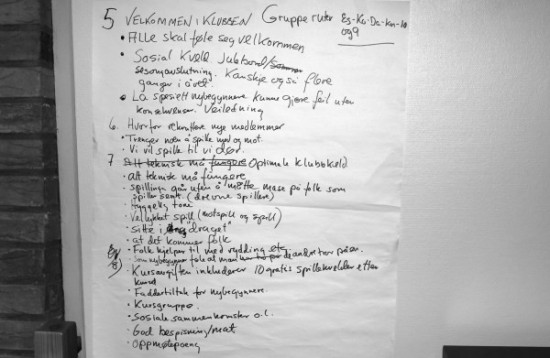 5 VELKOMMEN I KLUBBEN Gruppe ruter Eg-Ku-Da-
og 9
• Alle skal føle seg velkommen
• Sosial kveld. Julebord/
sesongavslutning. Kanskje også flere
ganger i året.
• La spesielt nybegynnere kunne gjøre feil uten
konsekvenser. Veiledning
6. Hvorfor rekruttere nye medlemmer
• Trenger noen å spille med og mot.
• Vi vil spille til vi dør.
7 Alt teknisk må fungere Optimale klubbkveld
• alt teknisk må fungere
• spillinga gå uten å måtte mase på folk som
spiller sent. (drevne spillere)
• hyggelig tone
• Vellykket spill (motspill og spill)
• Sitte i "draget"
• at det kommer folk
• Folk hjelper til med rydding etc.
8) • Kursavgiften inkluderer 10 gratis spillekvelder etter
kurset
• Faddertiltak for nybegynnere.
• Kursgruppe
• Sosiale sammenkomster o.l.
• God bespisning/mat
• Oppmøtepoeng